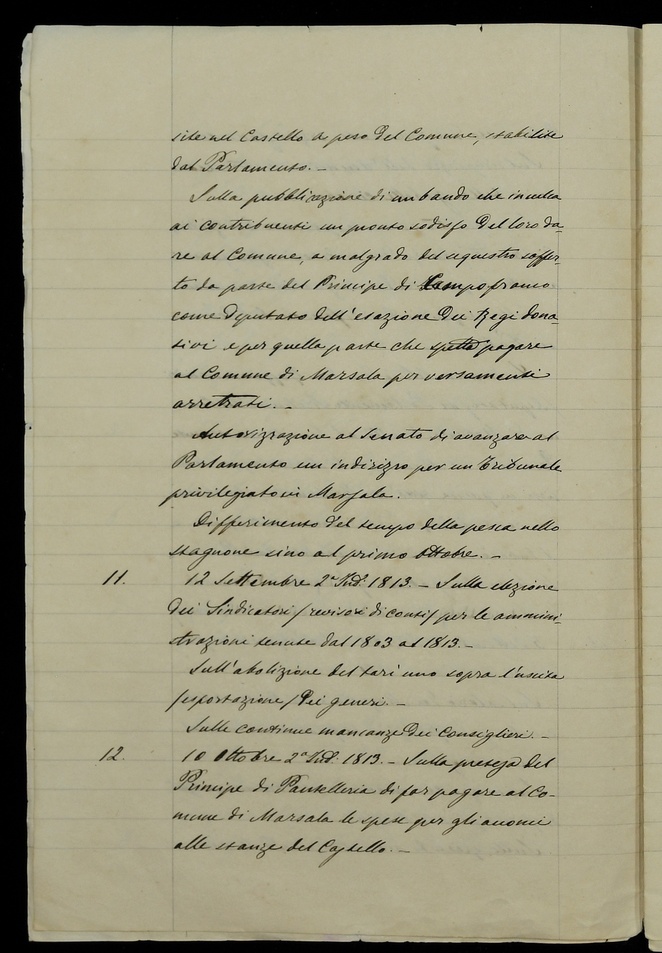 site nel Castello a peso del Comune, stabilite
dal Parlamento. –
Sulla pubblicazione di un bando che inculca
ai contribuenti un pronto sodisfo del loro da-
re al Comune, a malgrado del sequestro soffer-
to da parte del Principe di Campofranco
come Deputato dell'esazione dei Regi dona-
tivi e per quella parte che spetta pagare
al Comune di Marsala per versamenti
arretrati. –
Autorizzazione al Senato di avanzare al
Parlamento un indirizzo per un Tribunale
privilegiato in Marsala.
Differimento del tempo della pesca nello
stagnone sino al primo Ottobre. –
11. 12 Settembre 2ª Ind. 1813. – Sulla elezione
dei Sindicatori /revisori di conti/ per le ammini-
strazioni tenute dal 1803 al 1813. –
Sull'abolizione del tarì uno sopra l'uscita
/esportazione/ dei generi. –
Sulle continue mancanze dei Consiglieri. –
12. 10 Ottobre 2ª Ind. 1813. – Sulla pretesa del
Principe di Pantelleria di far pagare al Co-
mune di Marsala le spese per gli acconci
alle stanze del Castello. –